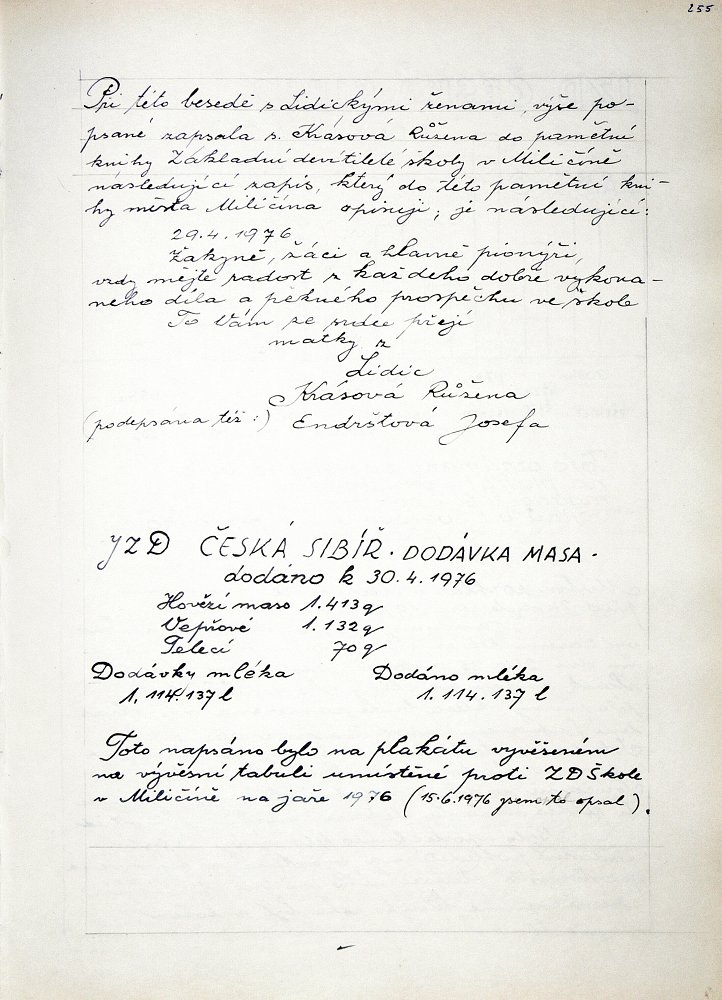 255
Při této besedě s Lidickými ženami, výše po-
psané zapsala s. Krásová Růžena do pamětní
knihy Základní devítileté školy v Miličíně
následující zápis, který do této pamětní kni-
hy města Miličína opisuji; je následující:
29.4.1976
Žákyně, žáci a hlavně pionýři,
vždy mějte radost z každého dobře vykona-
ného díla a pěkného prospěchu ve škole
To Vám ze srdce přejí
matky z
Lidic
Krásová Růžena
(podepsána též:) Endrštová Josefa
JZD ČESKÁ SIBÍŘ · DODÁVKA MASA ·
dodáno k 30.4.1976
Hovězí maso 1.413 q
Vepřové 1.132 q
Telecí 70 q
Dodávky mléka Dodáno mléka
1.114.137 l 1.114.137 l
Toto napsáno bylo na plakátu vyvěšeném
na vývěsní tabuli umístěné proti ZDŠkole
v Miličíně na jaře 1976 (15.6.1976 jsem to opsal).